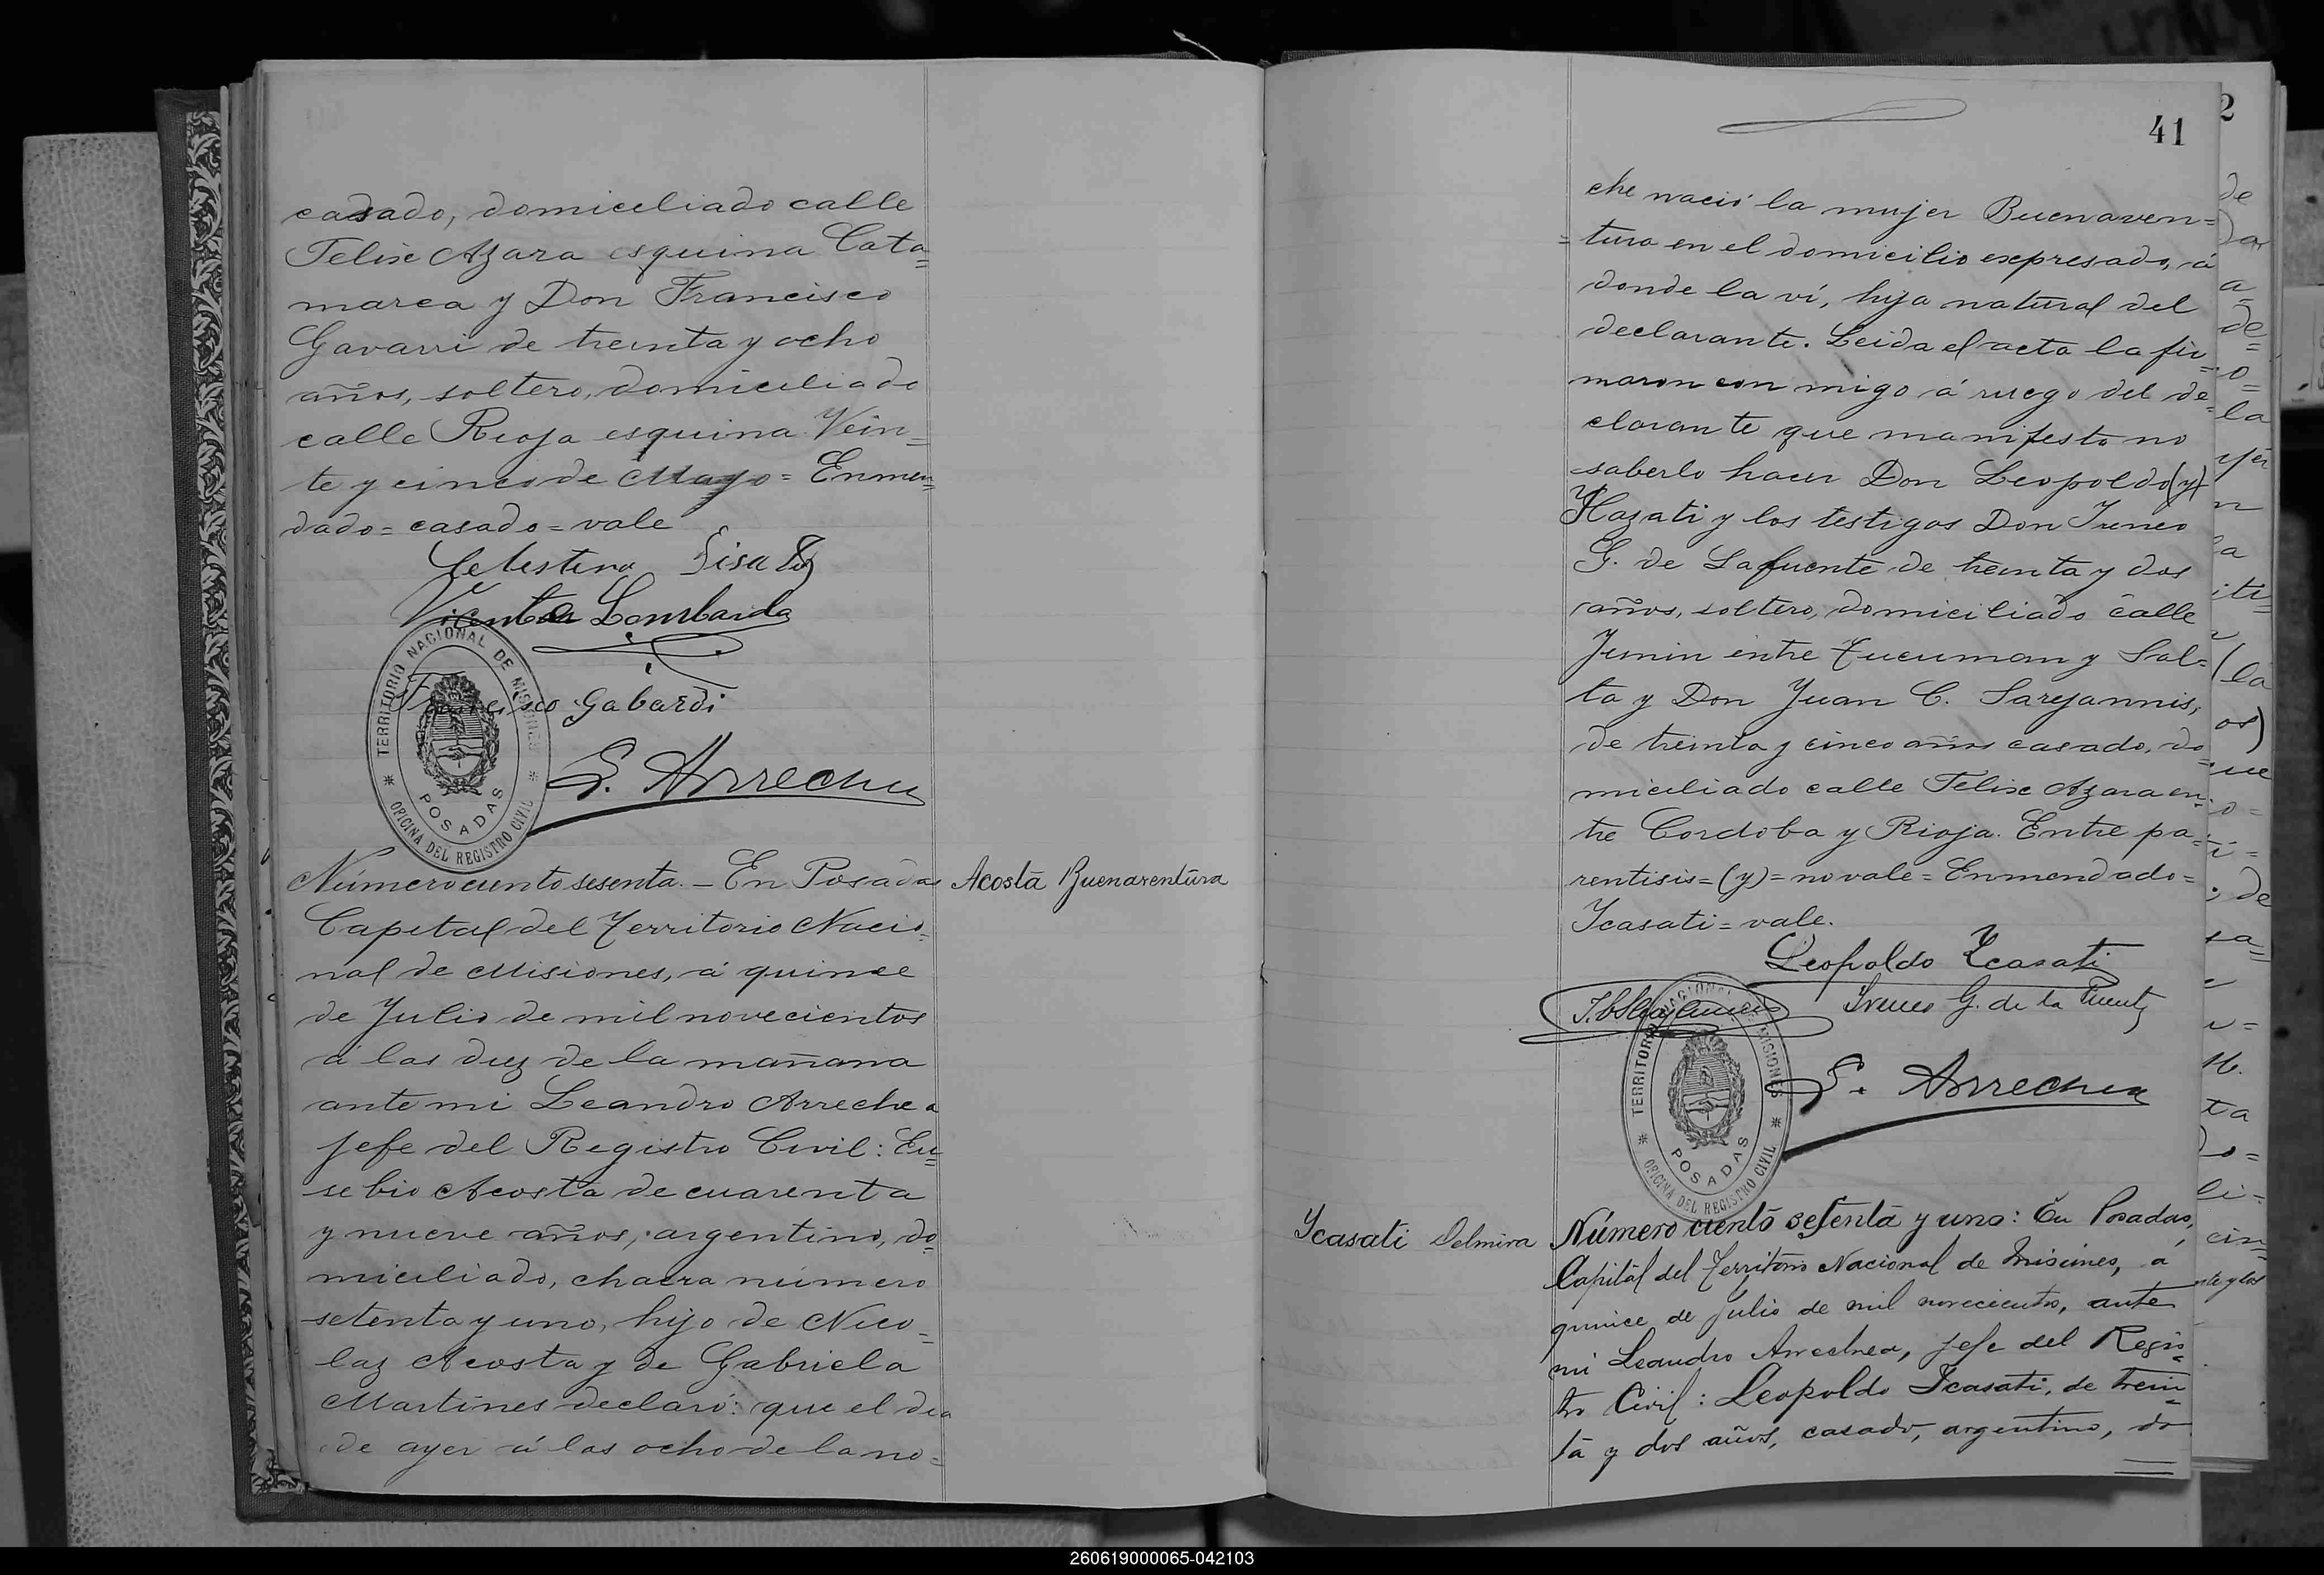 casado, domiciliado calle
Felix Azara esquina Cata=
marca y Don Francisco
Gavarri de treinta y ocho
años, soltero, domiciliado
calle Rioja esquina Vein=
te y cinco de Mayo = Enmen=
dado = casado = vale
Celestino
Vicente Lombarda
Francisco Gabardi
L. Arrechea
TERRITORIO NACIONAL DE MISIONES
POSADAS
OFICINA DEL REGISTRO CIVIL
Acosta Buenaventura
Número ciento sesenta. – En Posadas
Capital del Territorio Nacio=
nal de Misiones, á quince
de Julio de mil novecientos
á las diez de la mañana
ante mi Leandro Arrechea
Jefe del Registro Civil: Eu=
sebio Acosta de cuarenta
y nueve años, argentino, do=
miciliado, chacra número
setenta y uno, hijo de Nico=
laz Acosta y de Gabriela
Martines declaró: que el dia
de ayer á las ocho de la no=
41
che nació la mujer Buenaven=
=tura en el domicilio expresado, á
donde la ví, hija natural del
declarante. Leida el acta la fir=
maron con migo á ruego del de=
clarante que manifesto no
saberlo hacer Don Leopoldo (y)
Ycazati y los testigos Don Ireneo
G. de Lafuente de treinta y dos
años, soltero, domiciliado calle
Junin entre Tucuman y Sal=
ta y Don Juan C. Sarejannis,
de treinta y cinco años casado, do=
miciliado calle Felix Azara en=
tre Cordoba y Rioja. Entre pa=
rentisis = (y) = no vale = Enmendado =
Ycasati = vale.
Leopoldo Ycasati
Ireneo G. de la Fuente
L. Arrechea
TERRITORIO NACIONAL DE MISIONES
POSADAS
OFICINA DEL REGISTRO CIVIL
Ycasati Delmira
Número ciento sesenta y uno: En Posadas,
Capital del Territorio Nacional de Misiones, á
quince de Julio de mil novecientos, ante
mi Leandro Arrechea, Jefe del Regis=
tro Civil: Leopoldo Icasati, de trein=
ta y dos años, casado, argentino, do
260619000065-042103